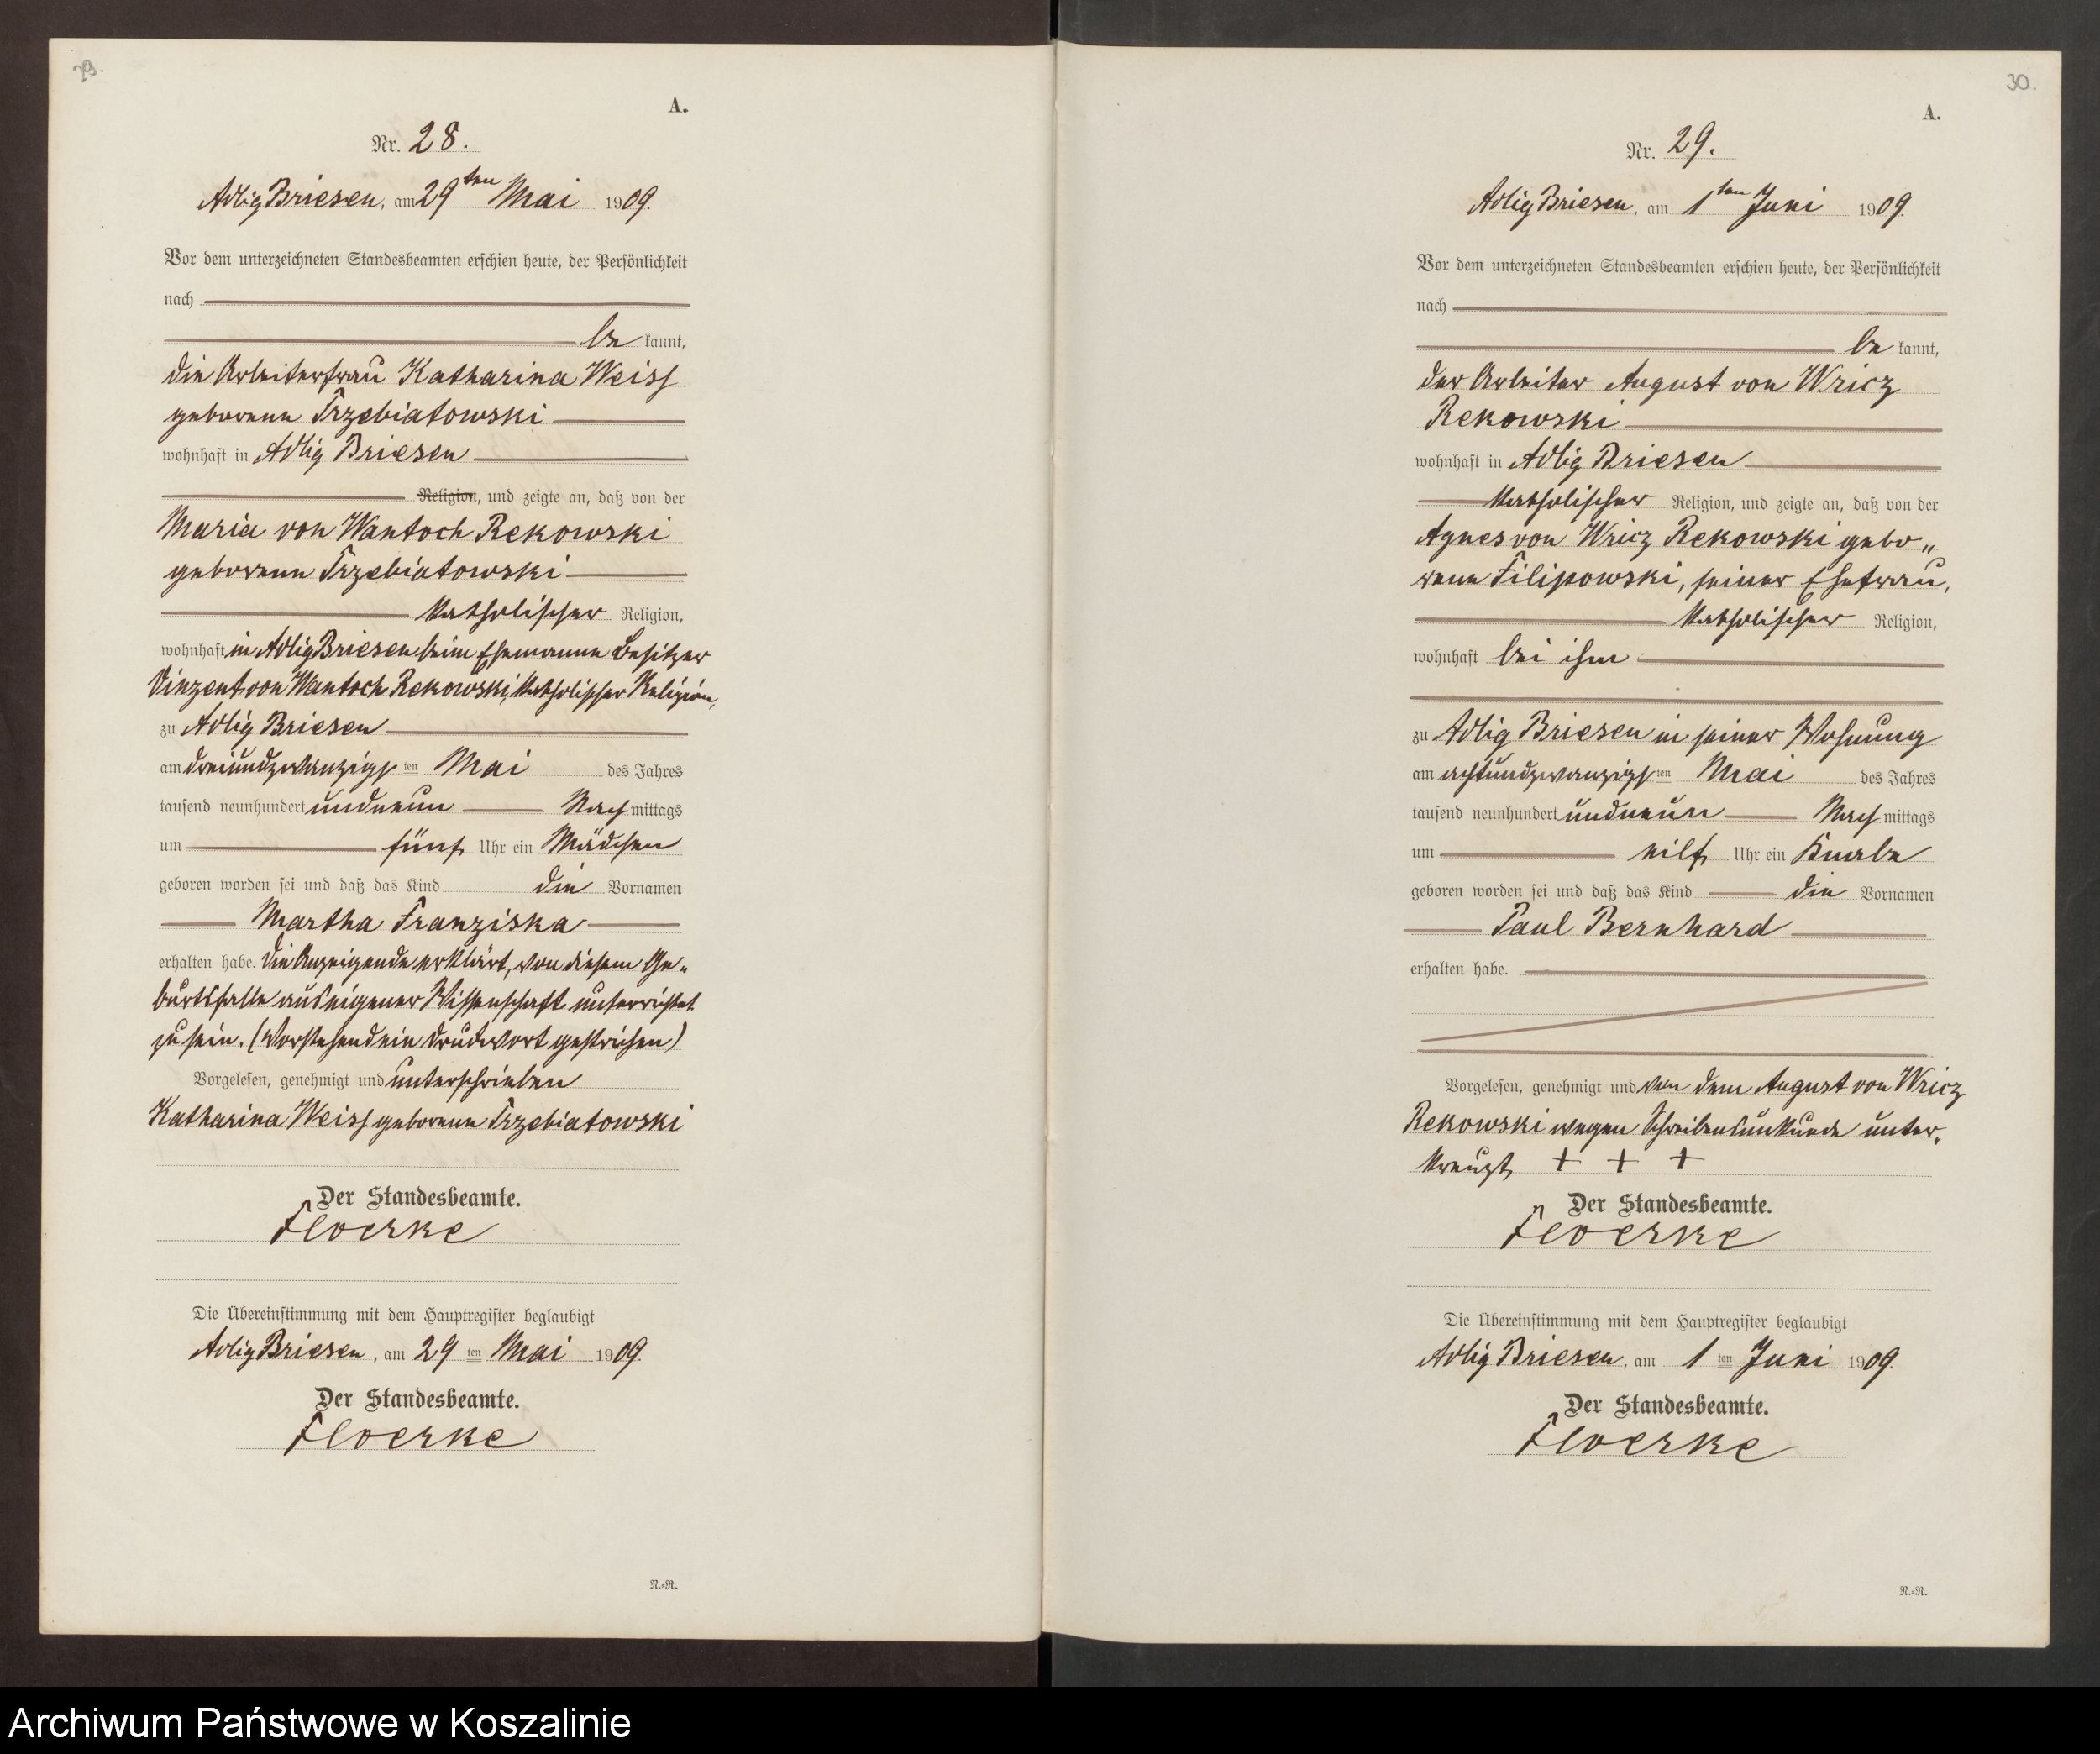 29.
A.
Nr. 28.
Adlig Briesen, am 29ten Mai 1909.
Vor dem unterzeichneten Standesbeamten erschien heute, der Persönlichkeit
nach
be kannt,
die Arbeiterfrau Katharina Weiss
geborene Trzebiatowski
wohnhaft in Adlig Briesen
Religion, und zeigte an, daß von der
Maria von Wantoch Rekowski
geborenen Trzebiatowski
katholischer Religion,
wohnhaft in Adlig Briesen beim Ehemanne Besitzer
Vinzent von Wantoch Rekowski, katholischer Religion,
zu Adlig Briesen
am dreiundzwanzigsten Mai des Jahres
tausend neunhundert undneun Nachmittags
um fünf Uhr ein Mädchen
geboren worden sei und daß das Kind die Vornamen
Martha Franziska
erhalten habe. Die Anzeigende erklärt, von diesem Ge-
burtsfalle aus eigener Wissenschaft unterrichtet
zu sein. (Vorstehend ein Druckwort gestrichen)
Vorgelesen, genehmigt und unterschrieben
Katharina Weiss geborene Trzebiatowski
Der Standesbeamte.
Floerke
Die Übereinstimmung mit dem Hauptregister beglaubigt
Adlig Briesen, am 29ten Mai 1909.
Der Standesbeamte.
Floerke
N.=N.
30.
A.
Nr. 29.
Adlig Briesen, am 1ten Juni 1909.
Vor dem unterzeichneten Standesbeamten erschien heute, der Persönlichkeit
nach
be kannt,
der Arbeiter August von Wricz
Rekowski
wohnhaft in Adlig Briesen
katholischer Religion, und zeigte an, daß von der
Agnes von Wricz Rekowski gebo-
rene Filipowski, seiner Ehefrau,
katholischer Religion,
wohnhaft bei ihm
zu Adlig Briesen in seiner Wohnung
am achtundzwanzigsten Mai des Jahres
tausend neunhundert undneun Nachmittags
um eilf Uhr ein Knabe
geboren worden sei und daß das Kind die Vornamen
Paul Bernhard
erhalten habe.
Vorgelesen, genehmigt und von dem August von Wricz
Rekowski wegen Schreibensunkunde unter-
kreuzt + + +
Der Standesbeamte.
Floerke
Die Übereinstimmung mit dem Hauptregister beglaubigt
Adlig Briesen, am 1ten Juni 1909.
Der Standesbeamte.
Floerke
N.=N.
Archiwum Państwowe w Koszalinie